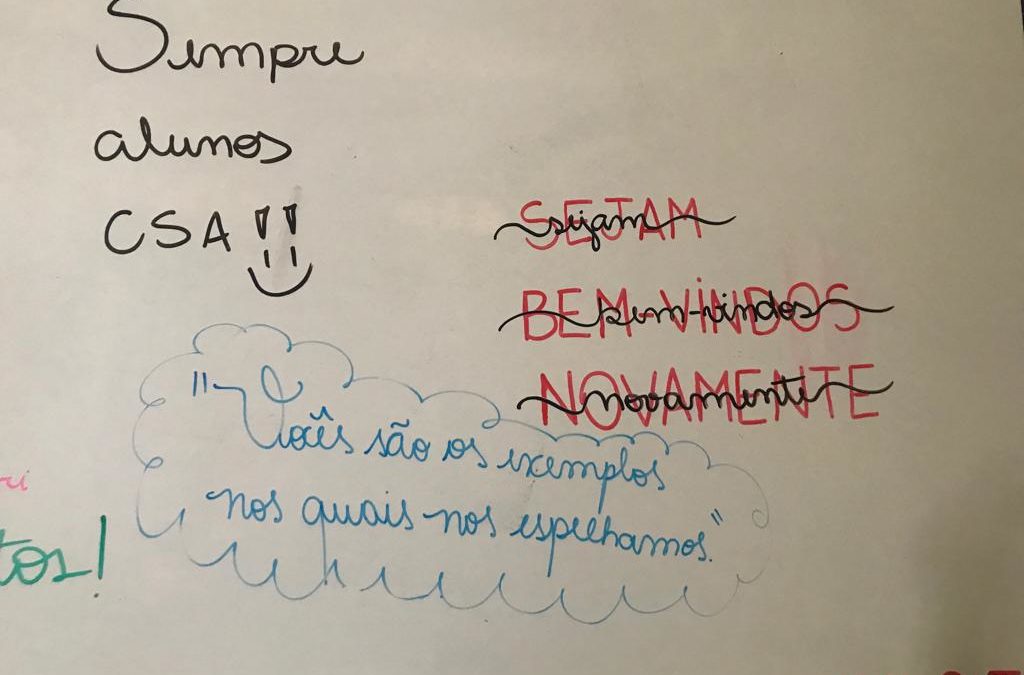 Sempre
alunos
CSA!!
SEJAM
sejam
BEM-VINDOS
bem-vindos
NOVAMENTE
novamente
"Vocês são os exemplos
nos quais nos espelhamos."